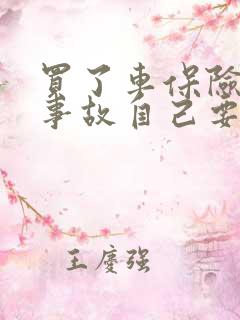 買了車保險
事故自己要
王慶强